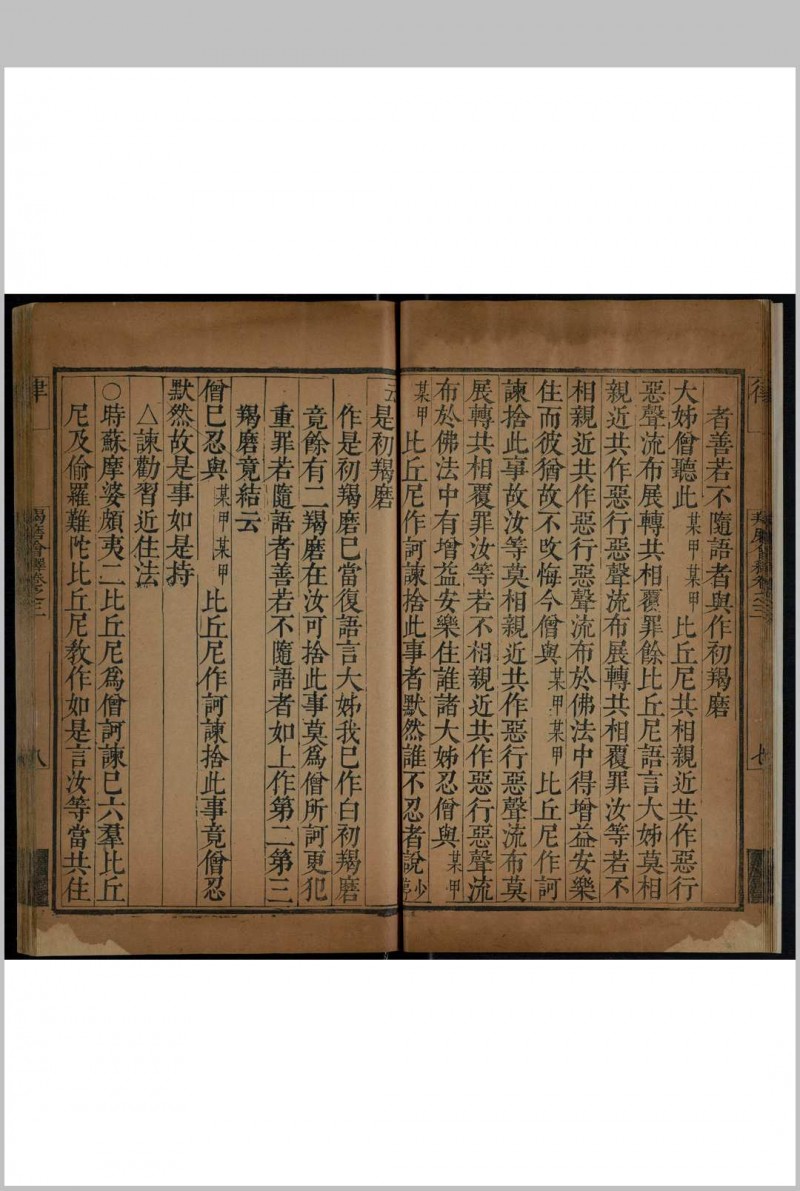 者善若不隨語者與作初羯磨
大姊僧聽此某甲某甲比丘尼共相親近共作惡行
惡聲流布展轉共相覆罪餘比丘尼語言大姊莫相
親近共作惡行惡聲流布展轉共相覆罪汝等若不
相親近共作惡行惡聲流布於佛法中得增益安樂
住而彼猶故不改悔今僧與某甲某甲比丘尼作訶
諫捨此事故汝等莫相親近共作惡行惡聲流布莫
展轉共相覆罪汝等若不相親近共作惡行惡聲流
布於佛法中有增益安樂住誰諸大姊忍僧與某甲
某甲比丘尼作訶諫捨此事者默然誰不忍者說少停
律
七
五是初羯磨
作是初羯磨已當復語言大姊我已作白初羯磨
竟餘有二羯磨在汝可捨此事莫為僧所訶更犯
重罪若隨語者善若不隨語者如上作第二第三
羯磨竟結云
僧已忍與某甲某甲比丘尼作訶諫捨此事竟僧忍
默然故是事如是持
△諫勸習近住法
○時蘇摩婆頗夷二比丘尼為僧訶諫已六羣比丘
尼及偷羅難陀比丘尼教作如是言汝等當共住
律
八